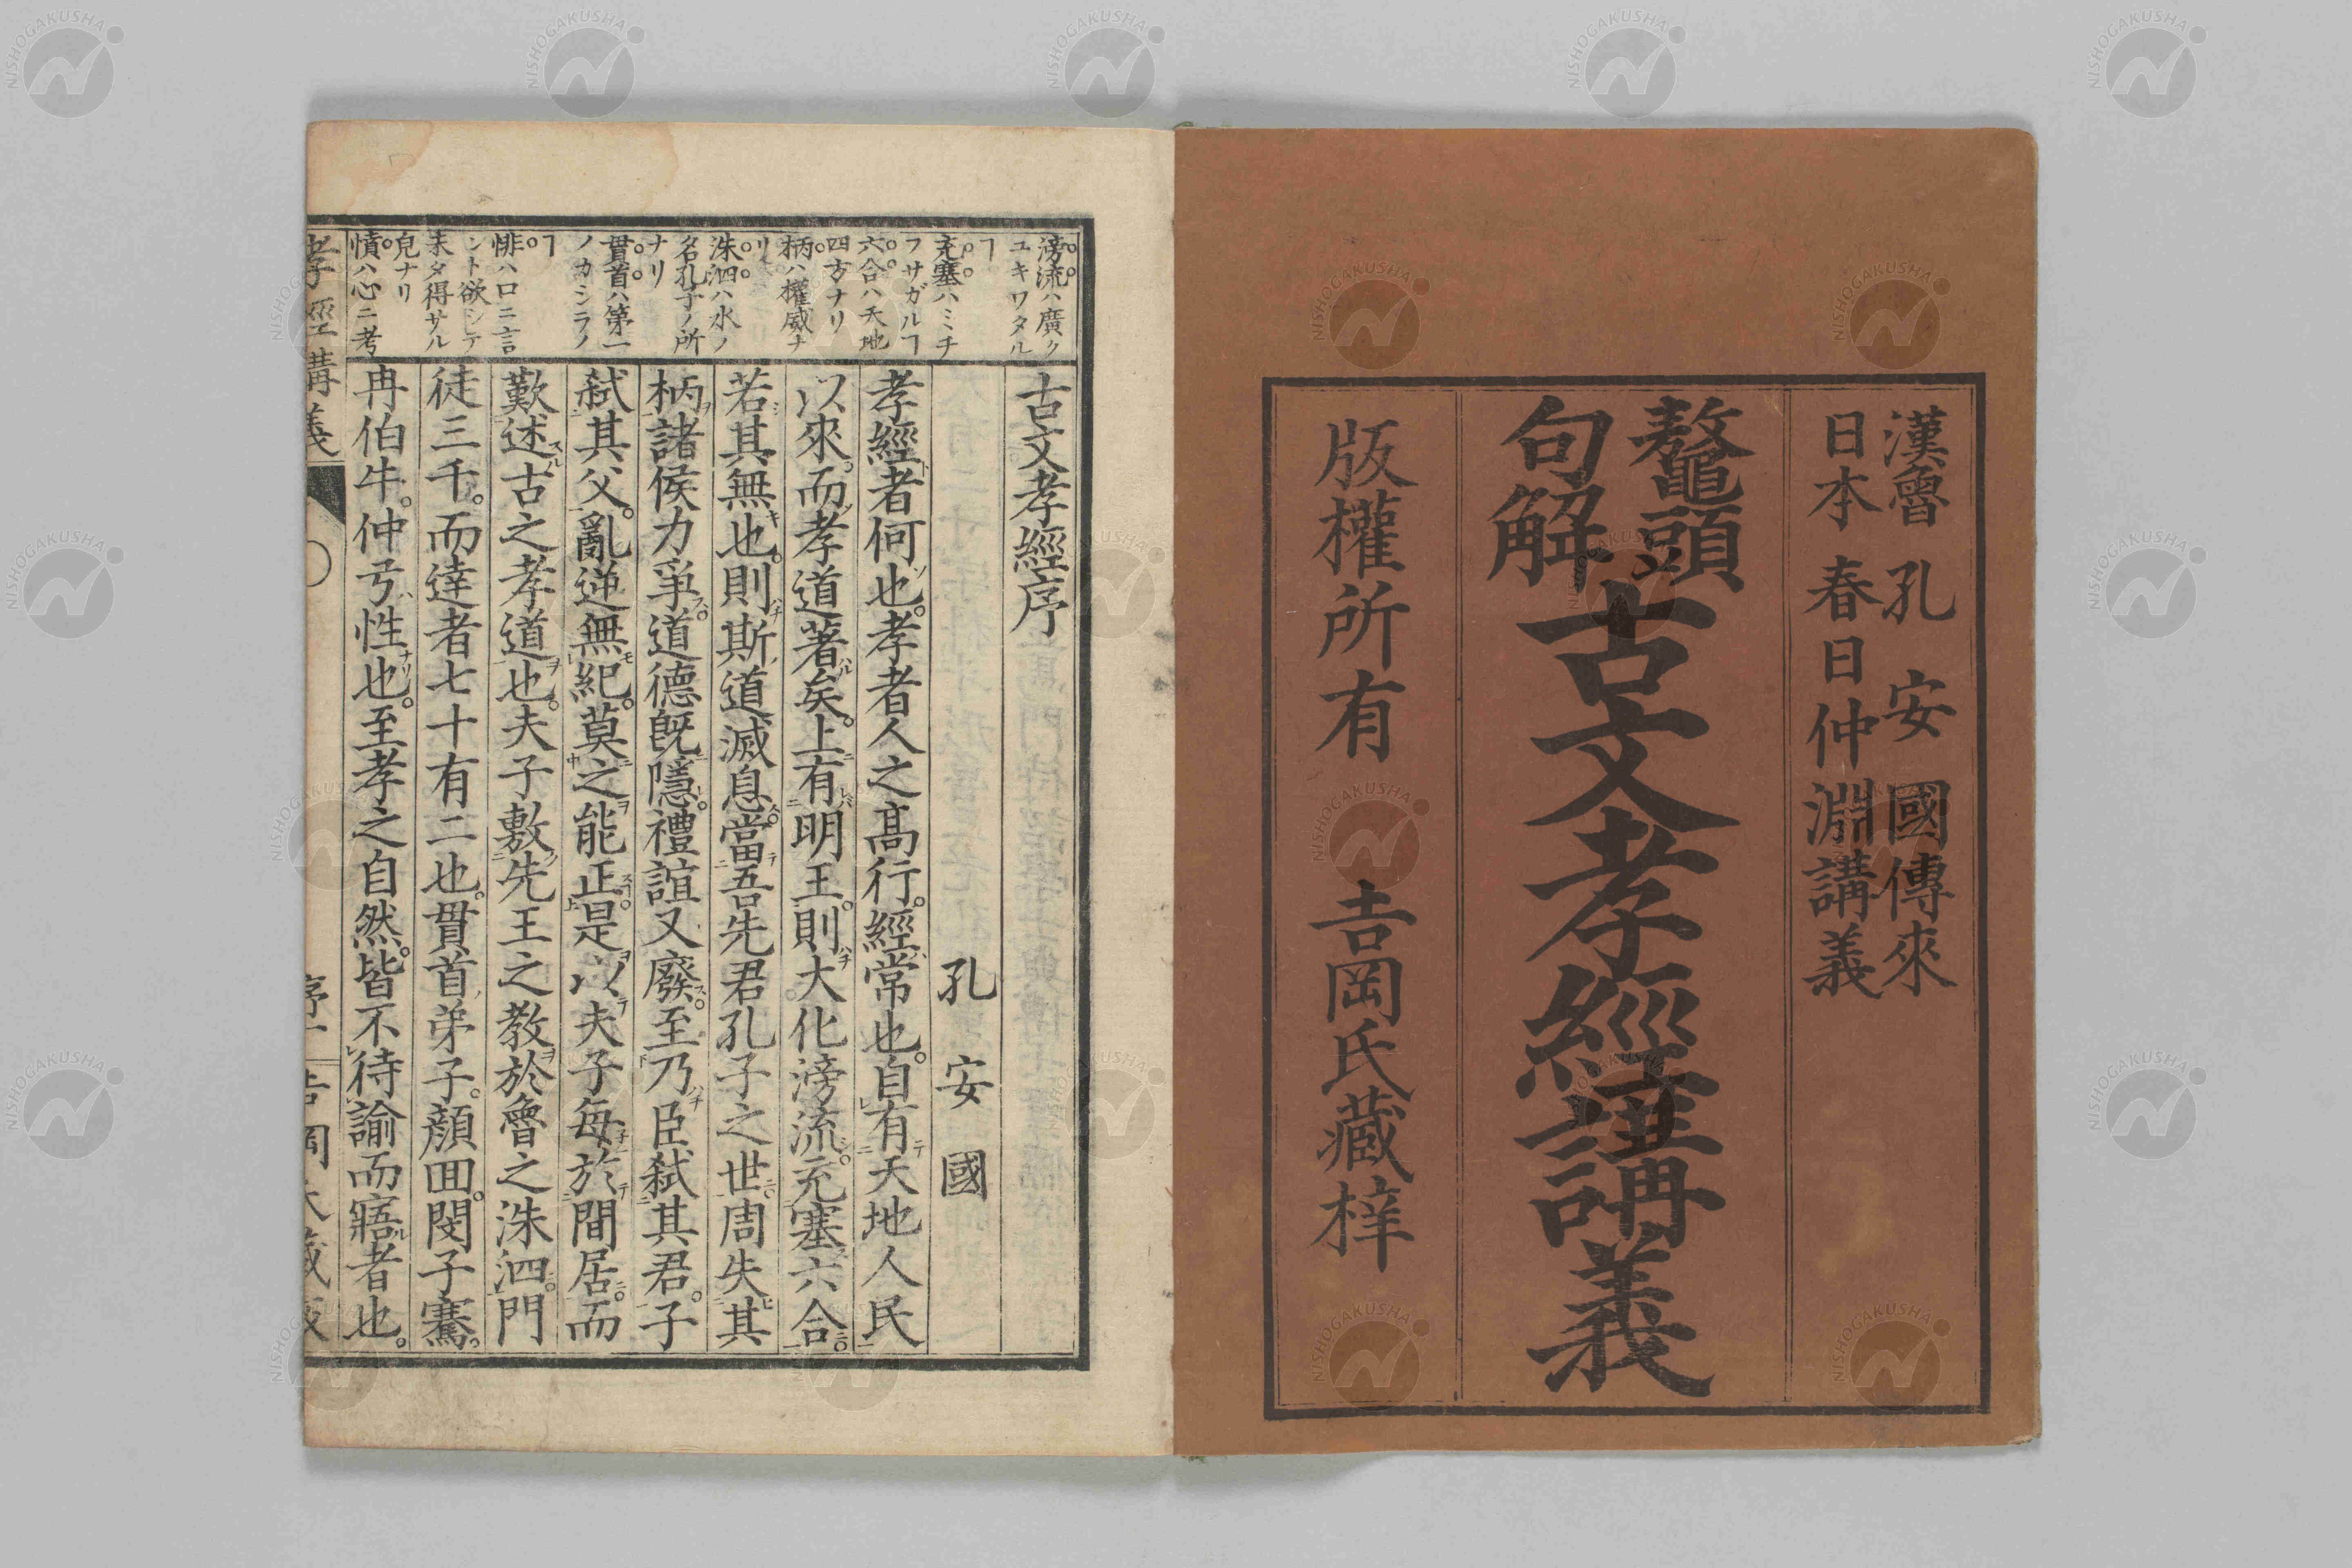 漢魯 孔安國傳來
日本 春日仲淵講義
鼇頭
句解
古文孝經講義
版權所有 吉岡氏藏梓
滂流ハ廣ク
ユキワタル
ヿ
充塞ハミチ
フサガルヿ
六合ハ天地
四方ナリ
柄ハ權威ナ
リ
洙泗ハ水ノ
名孔子ノ所
ナリ
貫首ハ第一
ノカシラノ
ヿ
悱ハ口ニ言
ント欲シテ
未タ得サル
皃ナリ
憤ハ心ニ考
古文孝經序
孔安國
孝經者何也。孝者人之髙行。經常也。自有天地人民
以來。而孝道著矣。上有明王。則大化滂流。充塞六合。
若其無也。則斯道滅息。當吾先君孔子之世。周失其
柄。諸侯力爭。道德既隱。禮誼又廢。至乃臣弑其君。子
弑其父。亂逆無紀。莫之能正。是以夫子每於閒居。而
歎述古之孝道也。夫子敷先王之教於魯之洙泗。門
徒三千。而達者七十有二也。貫首弟子。顏回。閔子騫。
冉伯牛。仲弓性也。至孝之自然。皆不待諭而寤者也。
孝經講義 序 一 吉岡氏藏版
NISHOGAKUSHA